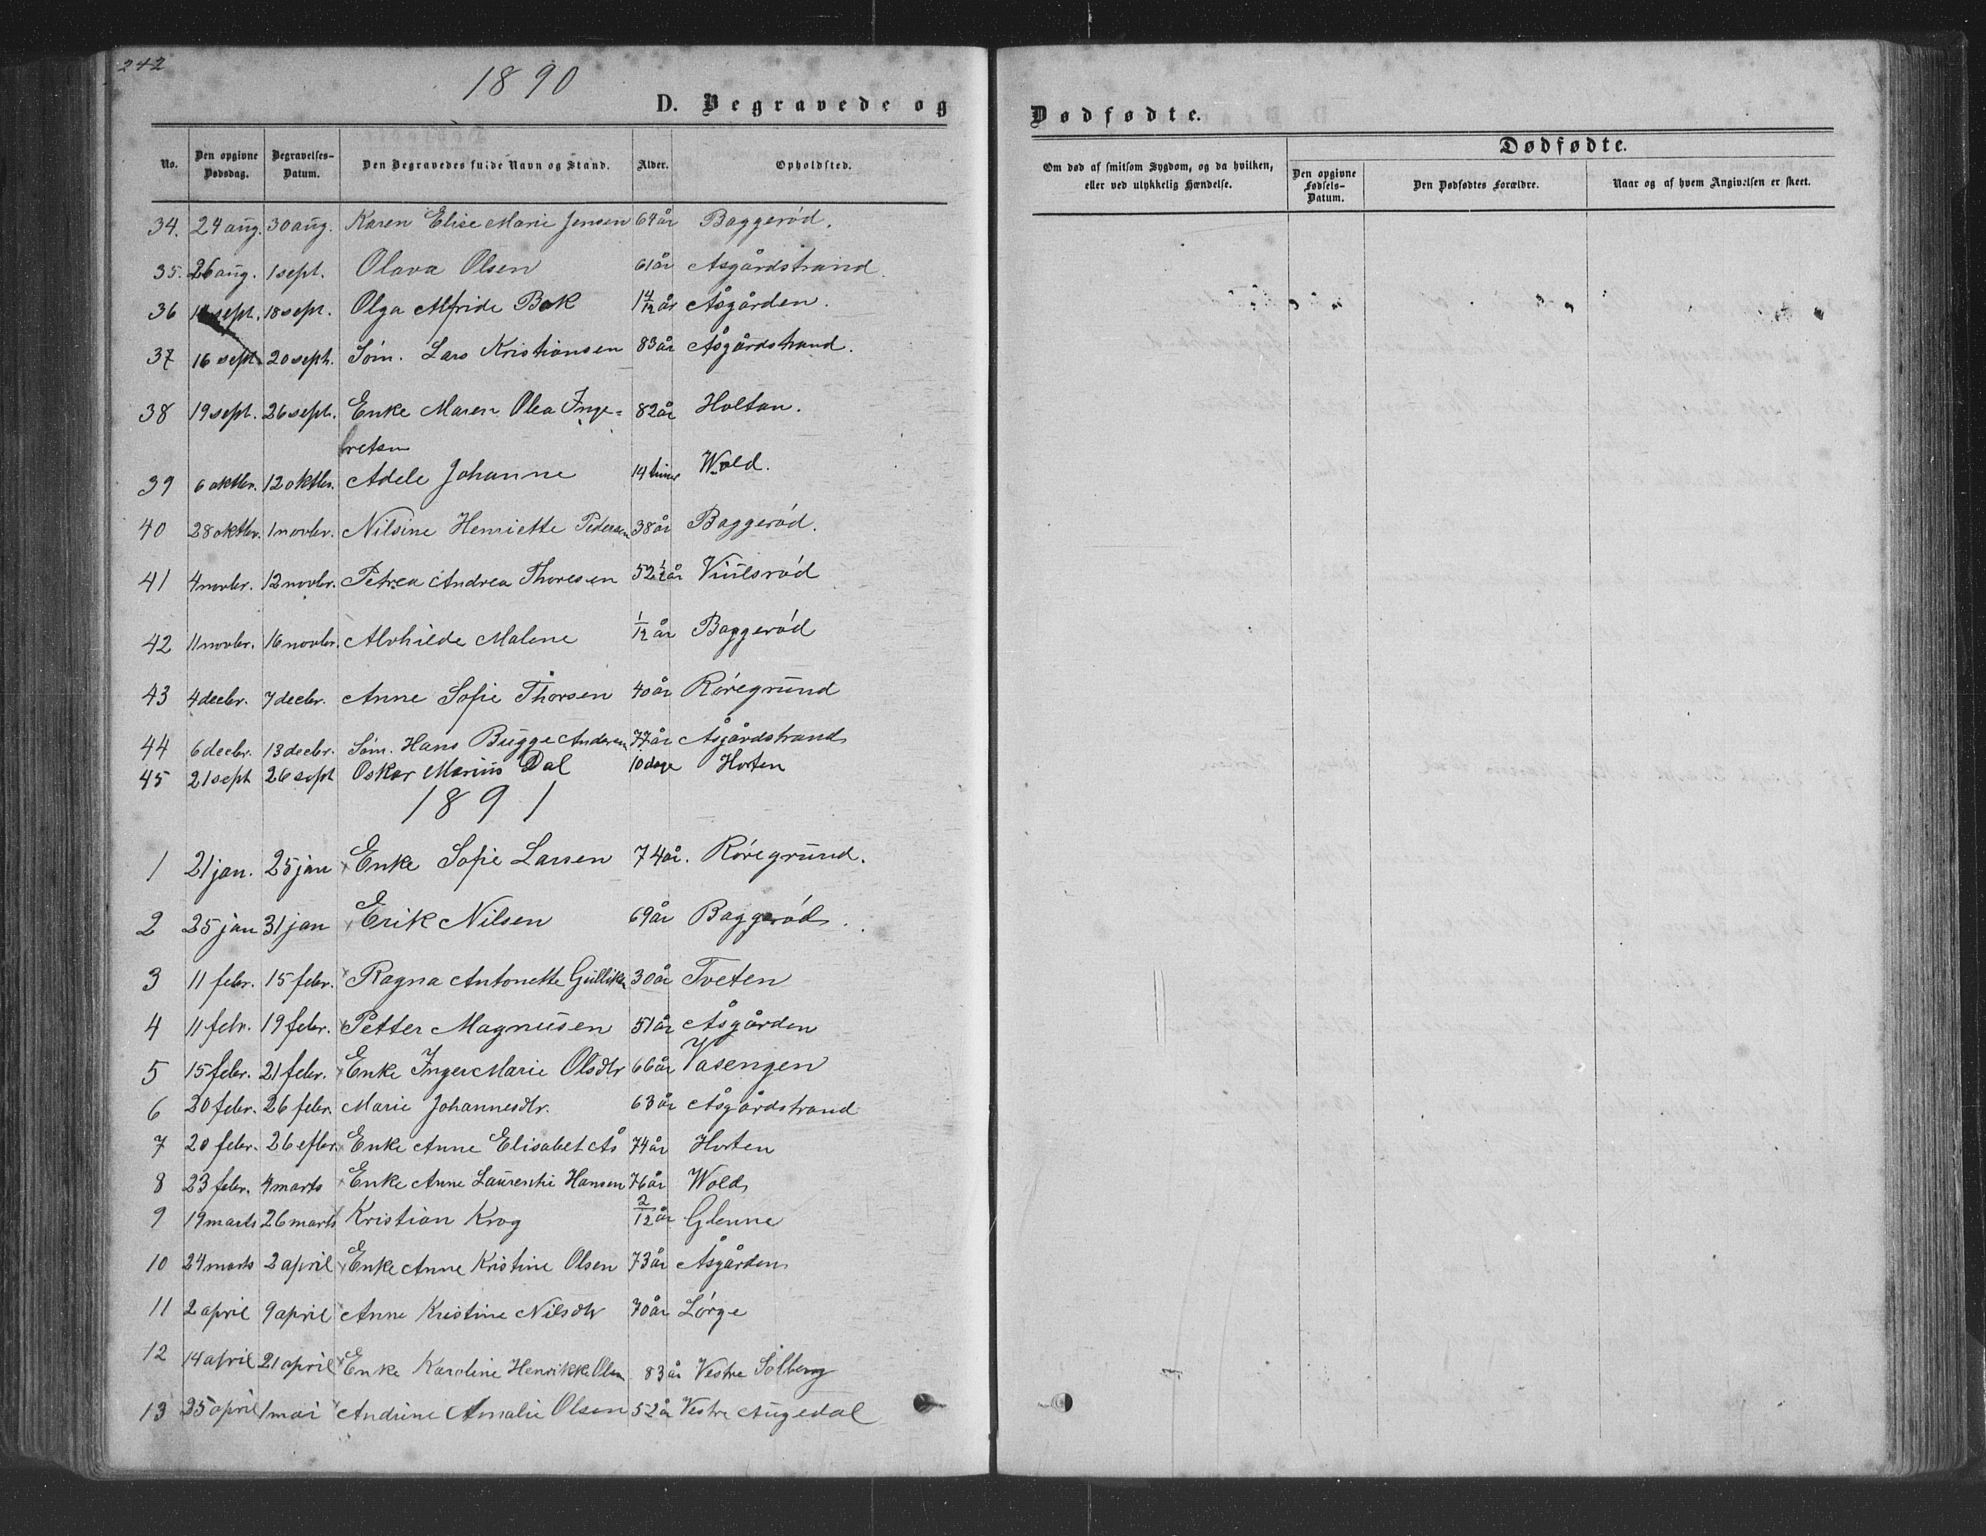 242
1890
D. Begravede og
Dødfødte.
No. Den opgivne Dødsdag. Begravelses-Datum. Den Begravedes fulde Navn og Stand. Alder. Opholdsted.
Om død af smitsom Sygdom, og da hvilken, eller ved ulykkelig Hændelse.
Dødfødte.
Den opgivne Fødsels-Datum. Den Dødfødtes Forældre. Naar og af hvem Angivelsen er skeet.
34. 24 aug. 30 aug. Karen Elise Marie Jensen 64 år Baggerød.
35. 26 aug. 1 sept. Olava Olsen 61 år Åsgårdstrand.
36 sept. 18 sept. Olga Alfride Bok 1 4/12 år Åsgården.
37 16 sept. 20 sept. Søm. Lars Kristiansen 83 år Åsgårdstrand.
38 19 sept. 26 sept. Enke Maren Olea Inge-
bretsen 82 år Holtan.
39 6 oktbr. 12 oktbr. Adele Johanne 14 timer Wold.
40 28 oktbr. 1 novbr. Nilsine Henriette Pedersen 38 år Baggerød.
41 4 novbr. 12 novbr. Petrea Andrea Thoresen 52 1/2 år Viulsrød
42 11 novbr. 16 novbr. Alvhilde Malene 1/12 år Baggerød
43 4 decbr. 7 decbr. Anne Sofie Thorsen 40 år Røregrund
44 6 decbr. 13 decbr. Søm. Hans Bugge Andersen 77 år Åsgårdstrand
45 21 sept 26 sept Oskar Marius Dal 10 dage Horten
1891
1 21 jan. 25 jan Enke Sofie Larsen 74 år. Røregrund.
2 25 jan 31 jan Erik Nilsen 69 år Baggerød.
3 11 febr. 15 febr. Ragna Antonette Gulliksen 30 år Tveten
4 11 febr. 19 febr. Petter Magnusen 51 år Åsgården
5 15 febr. 21 febr. Enke Inger Marie Olsdtr 66 år Vasengen
6 20 febr. 26 febr. Marie Johannesdtr. 63 år Åsgårdstrand
7 20 febr. 26 efbr. Enke Anne Elisabet Ås 74 år Horten
8 23 febr. 4 marts Enke Anne Laurentie Hansen 76 år Wold
9 19 marts 26 marts Kristian Krog 2/12 år Glenne
10 24 marts 2 april Enke Anne Kristine Olsen 73 år Åsgården
11 2 april 9 april Anne Kristine Nilsdtr 70 år Lørge
12 14 april 21 april Enke Karoline Henrikke Olsen 83 år Vestre Solberg
13 25 april 1 mai Andrine Amalie Olsen 52 år Vestre Augedal